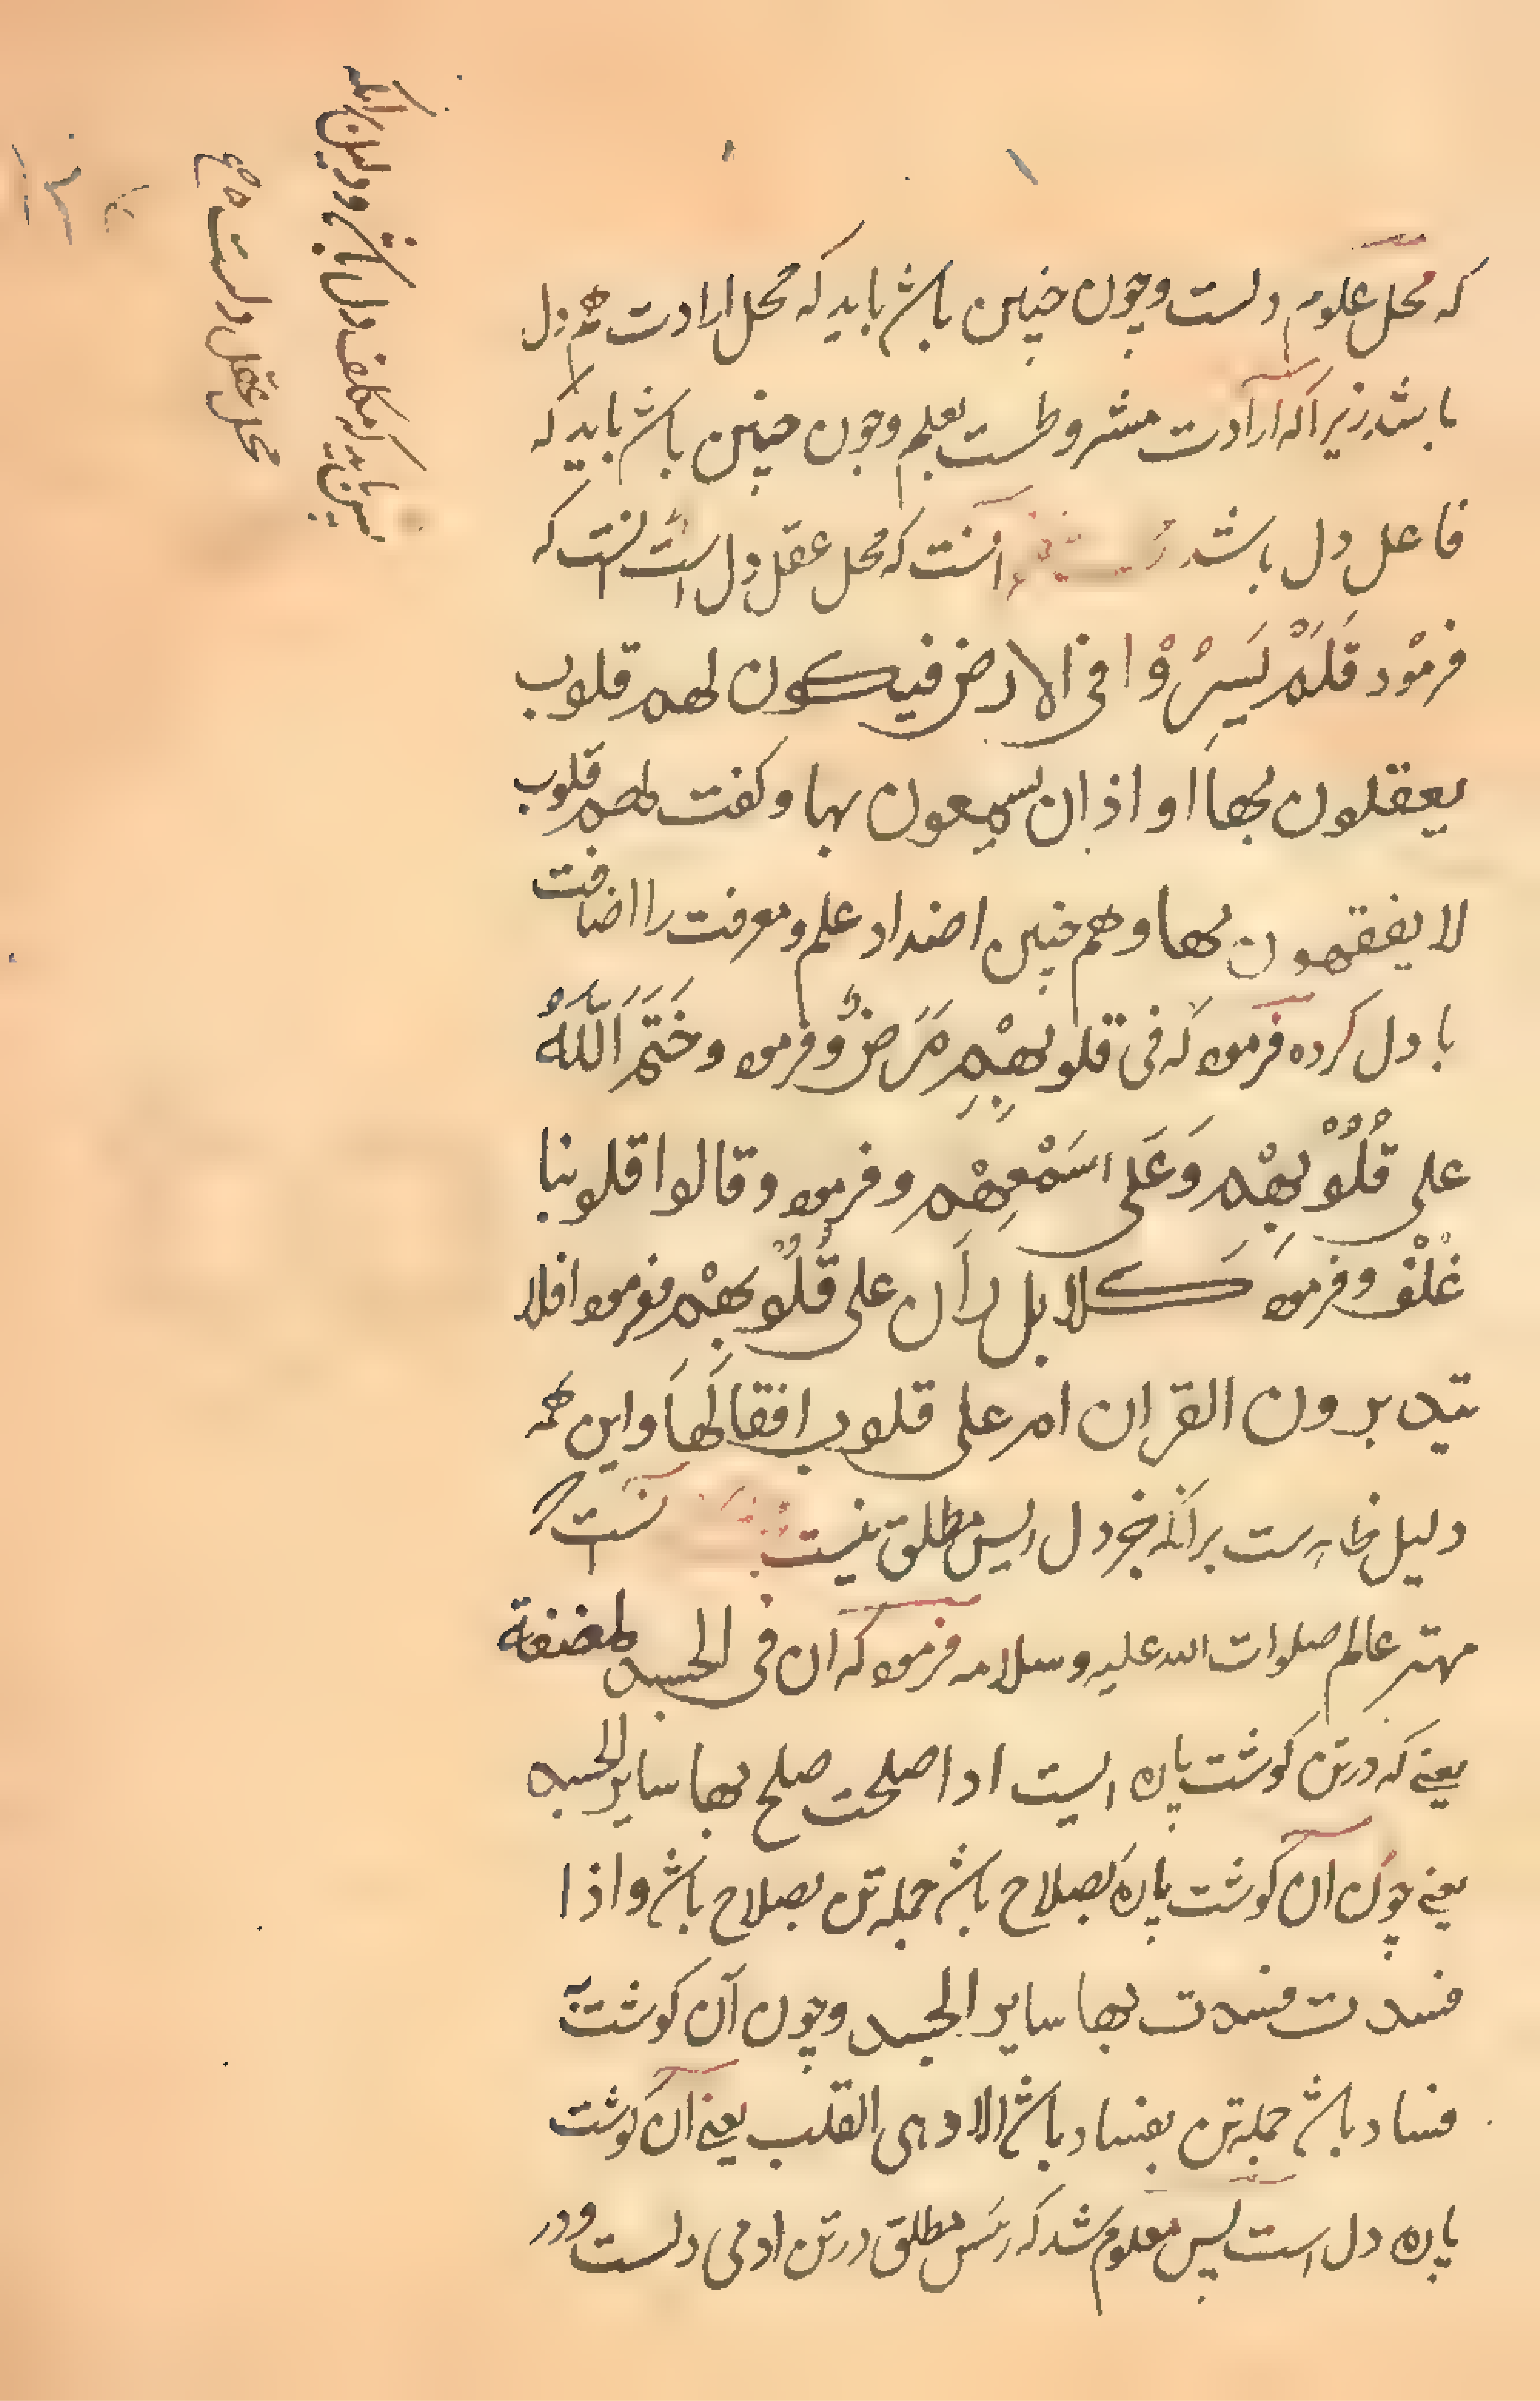 که محل علوم دلست وچون چنین باشد باید که محل ارادت هم دل
باشد زیرا که ارادت مشروطست بعلم وچون چنین باشد باید که
فاعل دل باشد آنست که محل عقل دل است آنست که
فرمود فَلَمْ یَسِیرُوْا فی الارض فیکون لهم قلوب
یعقلون بها او اذان یسمعون بها وکفت لهم قلوب
لا یفقهون بها وهم چنین اضداد علم ومعرفت را اضافت
با دل کرده فرموده که فی قلوبِهْم مَرَضٌ وفرموده وخَتَمَ اَللّهُ
علی قُلُوْبِهْم وَعَلی اسَمْعِهْم وفرموده وقالوا قلوبنا
غُلْفْ وفرموده کلا بل رَاَن علی قُلُوْبِهْم وفرموده افلا
یتدبرون القران ام علی قلوب اقفالَهَا واین همه
دلیل ظاهرست بر آنکه جز دل رییس مطلق نیست آنست که
مهتر عالم صلوات الله علیه وسلامه فرموده که ان فی الجسد لمضغة
یعنے که در تن کوشت پاره ایست اذا صلحت صلح بها سایر الجسد
یعنے چون آن کوشت پاره بصلاح باشد جمله تن بصلاح باشد واذا
فسدت فسدت بها سایر الجسد وچون آن کوشت
فساد باشد جمله تن بفساد باشد الا وهی القلب یعنے آن کوشت
پاره دل است پس معلوم شد که رئیس مطلق در تن ادمی دلست ودر
پس باید که مکلف دل باشد ودلیل بر آنکه
محل عقل دلست